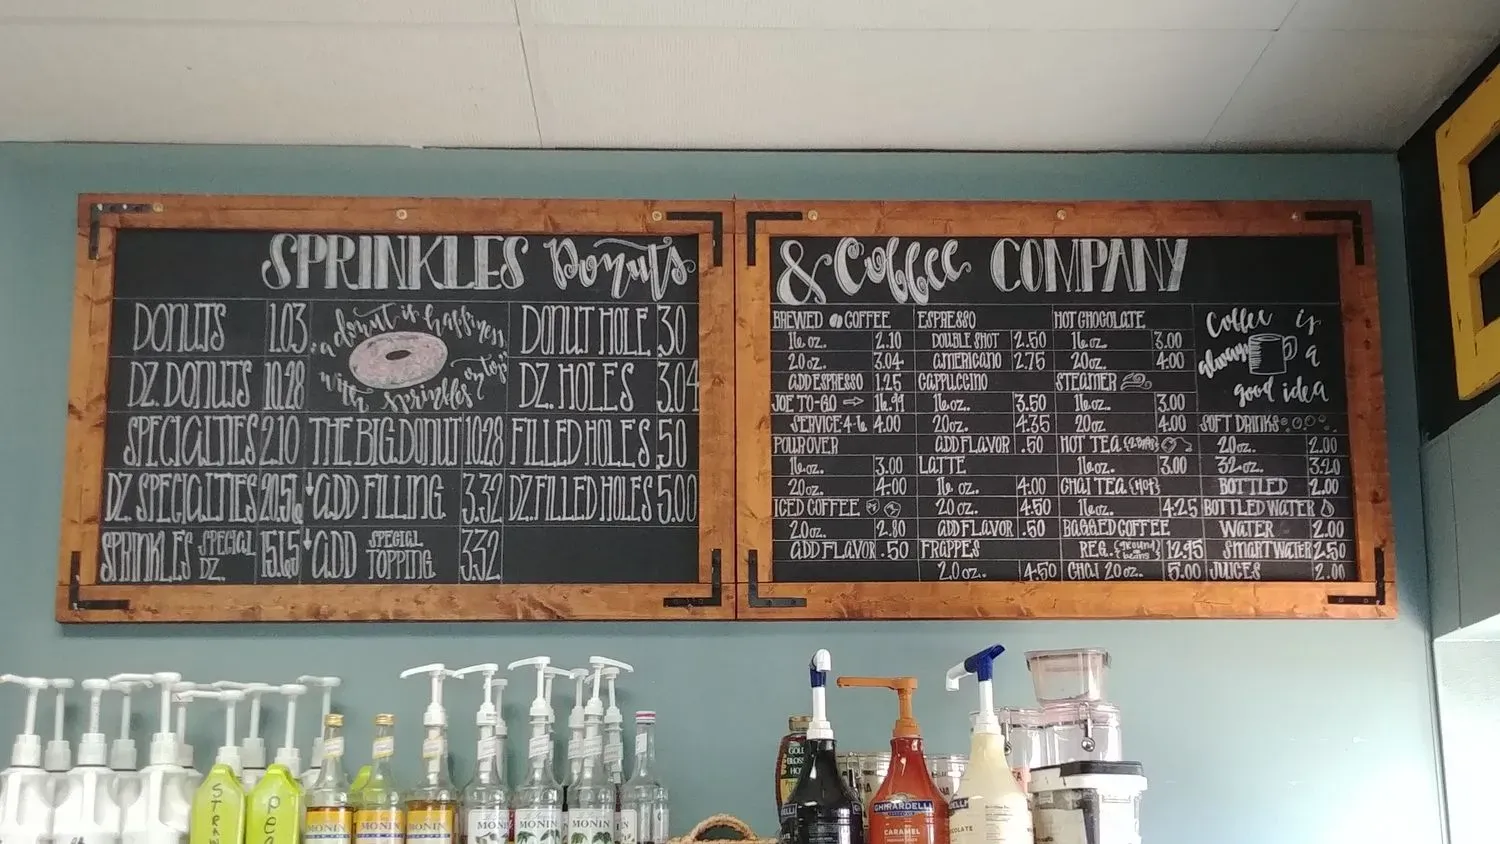 SPRINKLES Donuts
DONUTS 1.03
DZ. DONUTS 10.28
SPECIALTIES 2.10
DZ. SPECIALTIES 20.56
SPRINKLES SPECIAL DZ. 15.65
"a donut is happiness
with sprinkles on top"
THE BIG DONUT 10.28
ADD FILLING 3.32
ADD SPECIAL TOPPING 3.32
DONUT HOLE .30
DZ. HOLES 3.04
FILLED HOLES .50
DZ FILLED HOLES 5.00
& Coffee COMPANY
BREWED COFFEE
16 oz. 2.10
20 oz. 3.04
ADD ESPRESSO 1.25
JOE TO-GO → 16.99
SERVICE 4-6 4.00
POUROVER
16oz. 3.00
20oz. 4.00
ICED COFFEE
20oz. 2.80
ADD FLAVOR .50
ESPRESSO
DOUBLE SHOT 2.50
AMERICANO 2.75
CAPPUCCINO
16oz. 3.50
20oz. 4.35
ADD FLAVOR .50
LATTE
16 oz. 4.00
20 oz. 4.50
ADD FLAVOR .50
FRAPPES
20z. 4.50
HOT CHOCOLATE
16oz. 3.00
20oz. 4.00
STEAMER
16oz. 3.00
20oz 4.00
HOT TEA {2 BAGS}
16oz. 3.00
CHAI TEA {HOT}
16oz. 4.25
BAGGED COFFEE
REG. {ground or beans} 12.95
CHAI 20oz. 5.00
Coffee is
always a
good idea
SOFT DRINKS
20oz. 2.00
32oz. 3.20
BOTTLED 2.00
BOTTLED WATER
WATER 2.00
SMART WATER 2.50
JUICES 2.00
STRAW
Pe
MONIN
MONIN
MONIN
MONIN
MONIN
MONIN
GOLD
BLOSSOM
HO
GHIRARDELLI
CARAMEL